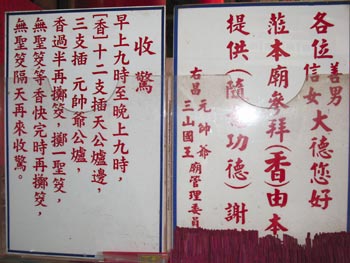 各位善男信女大德您好
蒞本廟參拜(香)由本
提供(功德)謝
右昌元帥爺三山國王廟管理委員
收驚
早上九時至晚上九時，
[香]十二支插天公爐邊，
三支插元帥爺公爐，
香過半再擲筊，擲一聖筊，
無聖筊等香快完時再擲筊，
無聖筊隔天再來收驚。